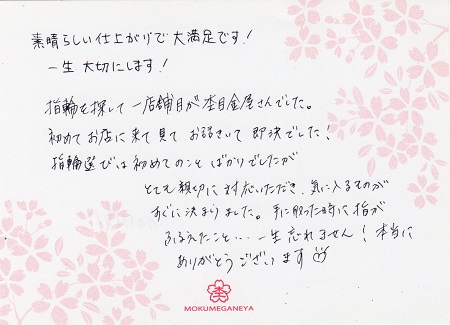 素晴らしい仕上がりで大満足です!
一生大切にします!
指輪を探して一店舗目が杢目金屋さんでした。
初めてお店に来て見てお話きいて即決でした!
指輪選びは初めてのことばかりでしたが
とても親切に対応いただき、気に入るものが
すぐに決まりました。手に取った時に指が
ふるえたこと…一生忘れません!本当に
ありがとうございます
MOKUMEGANEYA